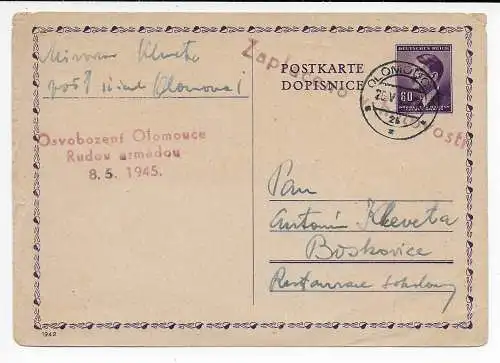 Miroslav Kleveta
pošt. úřad Olomouc 1
Zaplaceno
POSTKARTE
DOPISNICE
DEUTSCHES REICH
60
OLOMOUC
Osvobození Olomouce
Rudou armádou
8. 5. 1945.
Pan
Antonín Kleveta
Boskovice
Restaurace Sokolovny
1942